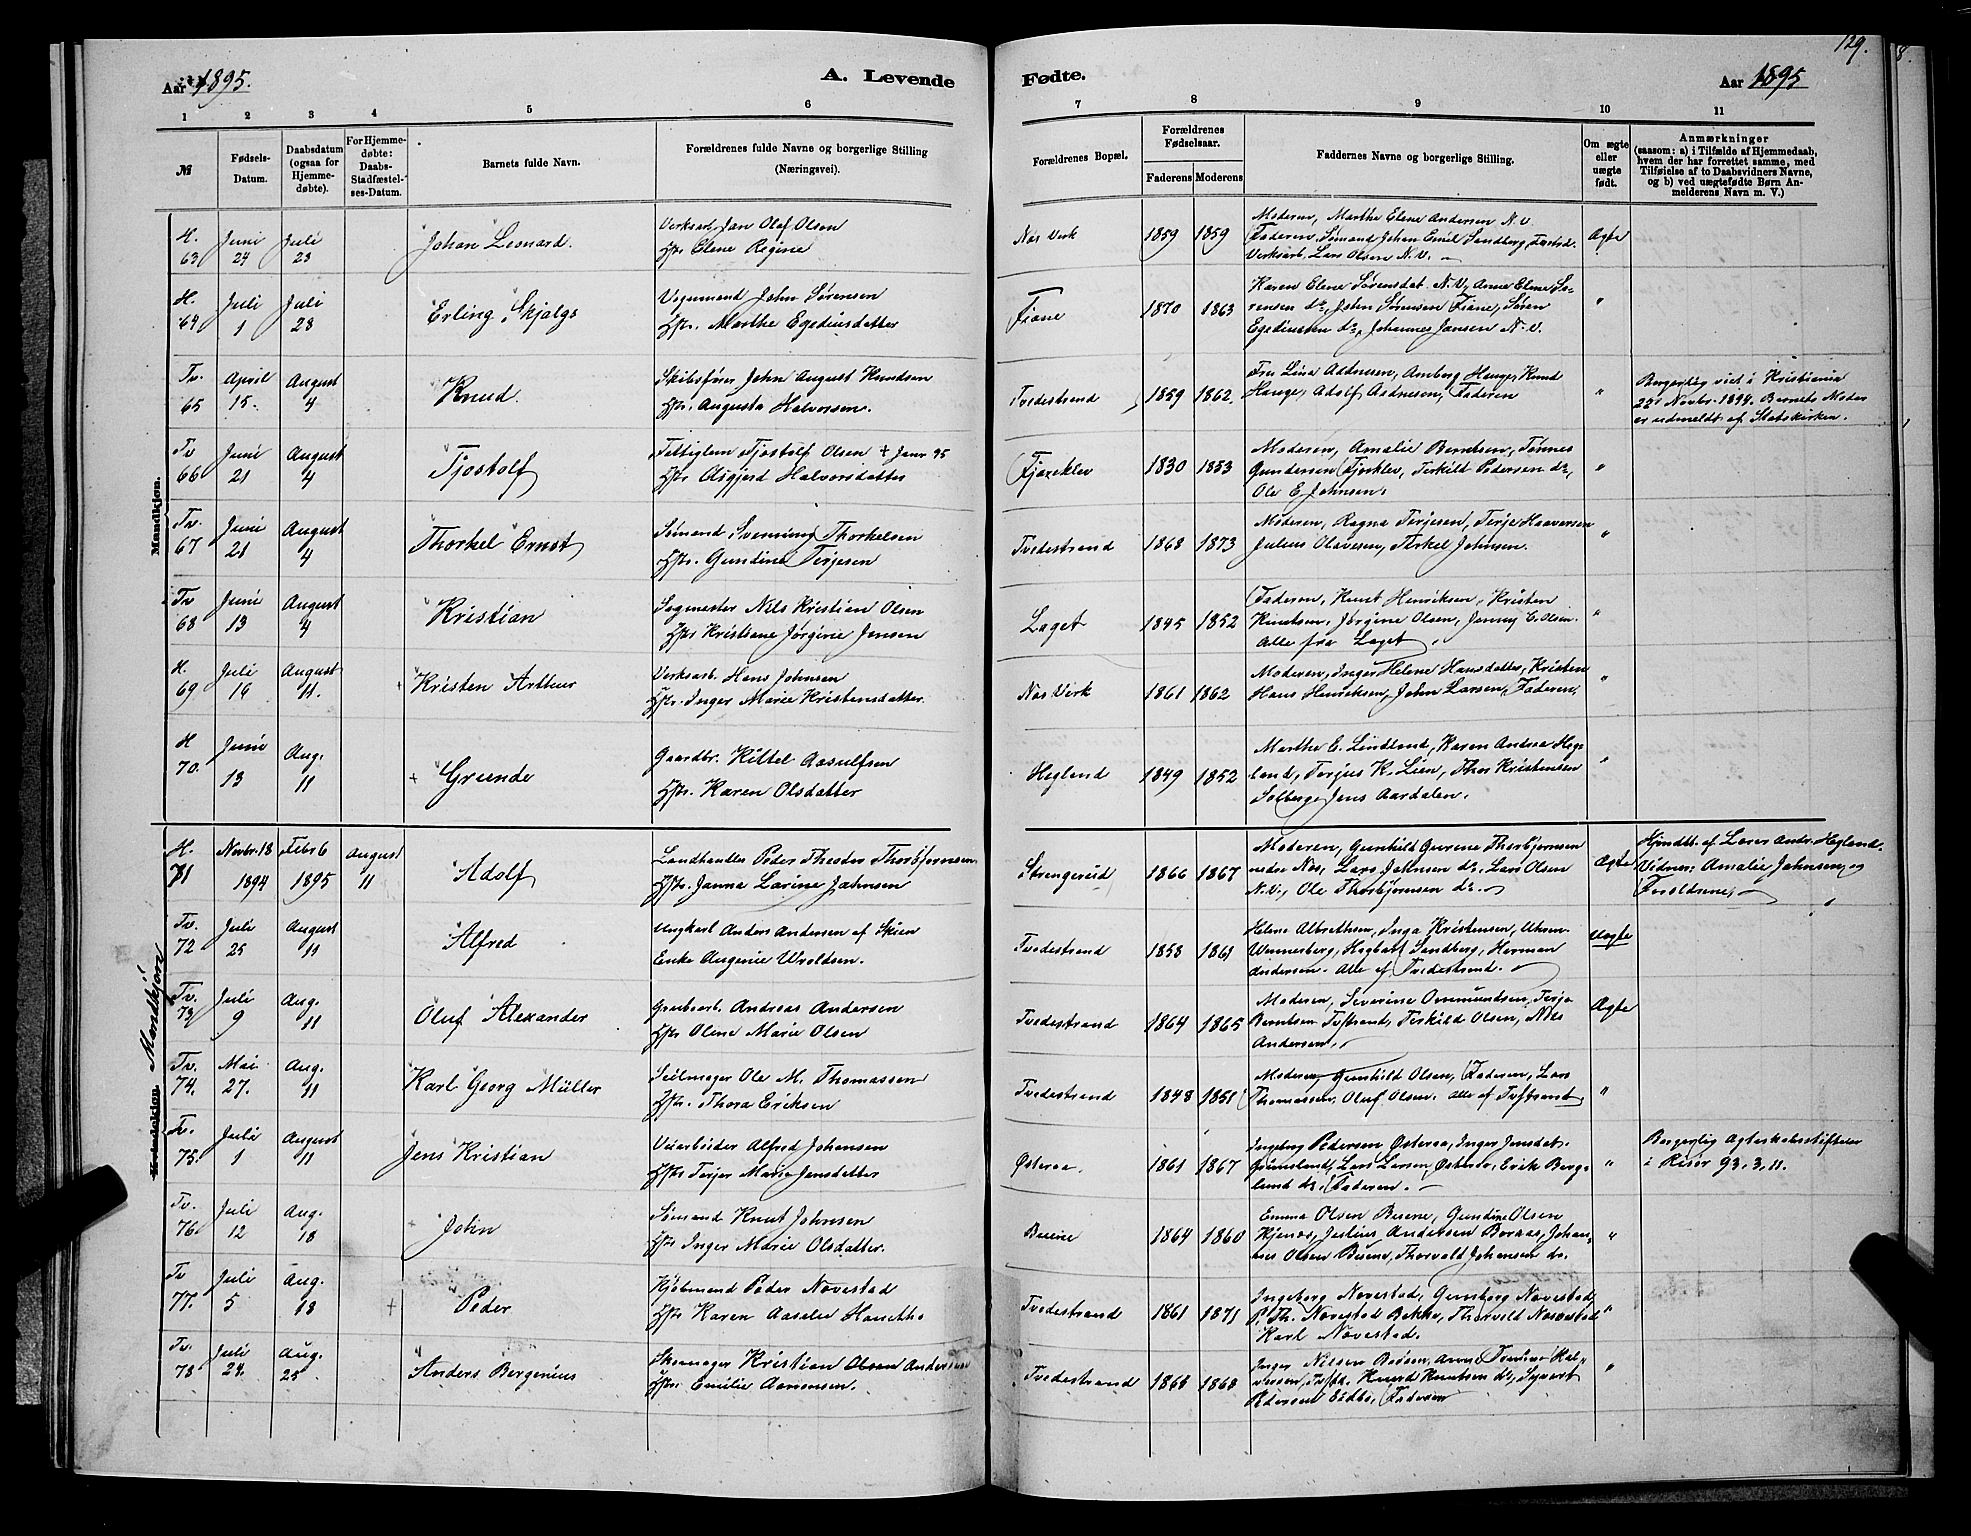 129.
Aar 1895.
A. Levende
Fødte.
Aar 1895
1 2 3 4 5 6 7 8 9 10 11
№
Fødsels-Datum.
Daabsdatum (ogsaa for Hjemmedøbte).
For Hjemmedøbte: Daabs-Stadfæstelses-Datum.
Barnets fulde Navn.
Forældrenes fulde Navne og borgerlige Stilling (Næringsvei).
Forældrenes Bopæl.
Forældrenes Fødselsaar.
Faderens Moderens
Faddernes Navne og borgerlige Stilling.
Om ægte eller uægte født.
Anmærkninger
(saasom: a) i Tilfælde af Hjemmedaab,
hvem der har forrettet samme, med
Tilføielse af to Daabsvidners Navne,
og b) ved uægtefødte Børn Anmelderens Navn m. V.)
Mandkjøn.
H. 63 Juni 24 Juli 28 Johan Leonard.
Verksarb. Jan Olaf Olsen
Hstr. Elene Regine
Næs Verk 1859 1859
Moderen, Marthe Elene Andersen N. V.
Faderen, Sømand Johan Emil Sandberg,
Verksarb. Lars Olsen N. V.
Ægte
H. 64 Juli 1 Juli 28 Erling Skjalgs
Vognmand John Sørensen
Hstr. Marthe Egediusdatter
Fiane 1870 1863
Karen Elene Sørensdat. N. V., Anne Elene Sørensen do, John Sørensen Fiane, Søren
Egediusen do, Johannes Jansen N. V.
"
Tv. 65 April 15. August 4 Knud.
Skibsfører John August Knudsen
Hstr. Augusta Halvorsen.
Tvedestrand 1859 1862
Fru Lina Aadnesen, Amberg Hauge, Knud
Hauge, Adolf Aadnesen, Faderen
"
Borgerlig viet i Kristiania
22de Novbr. 1894. Barnets Moder
er udmeldt af Statskirken.
Tv 66 Juni 21 August 4 Tjostolf
Fattiglem Tjostolf Olsen + Janr 95
Hstr Asgjerd Halvorsdatter
Fjæreklev 1830 1853
Moderen, Amalie Berntsen, Tønnes
Gundersen Fjærklev, Terkild Pedersen do,
Ole E. Johnsen.
"
Tv. 67 Juni 21 August 4 Thorkel Ernst
Sømand Svenning Thorkelsen
Hstr. Gundine Terjesen
Tvedestrand 1868 1873
Moderen, Ragna Terjesen, Terje Haaversen
Julius Olavesen, Terkel Johnsen.
"
Tv 68 Juni 13 August 4 Kristian
Sagmester Nils Kristian Olsen
Hstr Kristiane Jørgine Jensen
Laget 1845 1852
Faderen, Knut Henriksen, Kristen
Knutsen, Jørgine Olsen, Jenny C. Olsen.
Alle fra Laget.
"
H. 69 Juli 14 August 11. + Kristen Arthur
Verksarb. Hans Johnsen
Hstr. Inger Marie Kristensdatter.
Næs Verk 1861 1862
Moderen, Inger Helene Hansdatter, Kristen
Hans Henriksen, John Larsen, Faderen,
"
H 70. Juni 13 Aug. 11 + Grunde
Gaardbr. Kittel Aasulfsen
Hstr. Karen Olsdatter
Hegland 1849 1852
Marthe E. Lindland, Karen Andrea Hegland, Terjus K. Lien, Thor Kristensen
Solberg, Jens Aardalen.
"
Mandkjøn
H. 71 Novbr. 18 1894 Febr 6 1895 August 11 Adolf
Landhandler Peder Theodor Thorbjørnsen
Hstr. Janna Larine Jahnsen
Strengereid 1866 1867
Moderen, Gunhild Gurine Thorbjørnsen
nedre Næs, Lars Jahnsen do, Lars Olsen
N. V., Ole Thorbjørnsen do.
Ægte
Hjmdbt. af Lærer Andr. Hegland.
Vidner: Amalie Jahnsen, og
Forældrene,
Tv. 72 Juli 25 August 11 Alfred
Ungkarl Anders Andersen af Skien
Enke Augenie Uvoldsen.
Tvedestrand 1858 1861
Helene Albrethsen, Inga Kristensen,
Wennesberg, Hagbart Sandberg, Herman
Andersen. Alle af Tvedestrand.
Uægte
Tv. 73 Juli 9 Aug. 11 Oluf Alexander
Grubearb. Andreas Andersen
Hstr Oline Marie Olsen
Tvedestrand 1864 1865
Moderen, Severine Ommundsen, Terje
Berntsen Tvstrand, Terkild Olsen, Nils
Andersen.
Ægte
Tv. 74. Mai 27. Aug. 11 Karl Georg Müller
Seilmager Ole M. Thomassen
Hstr. Thora Eriksen
Tvedestrand 1848 1851
Moderen, Gunhild Olsen, Faderen, Lars
Thomassen, Oluf Olsen. Alle af Tvstrand
"
Tv. 75. Juli 1 August 11 Jens Kristian
Veiarbeider Alfred Johansen
Hstr. Terjer Marie Jensdatter
Østeraa. 1861 1867
Ingeborg Pedersen Østeraa, Inger Jensdat.
Grønsland, Lars Larsen Østeraa, Erik Berglund do, Faderen.
"
Borgerlig Ægteskabsstiftelse
i Risør 93. 3. 11.
Tv. 76. Juli 12 Aug. 18 + John
Sømand Knut Johnsen
Hstr Inger Marie Olsdatter.
Buene 1864 1860
Emma Olsen Buene, Gundine Olsen
Kjenæs, Julius Andersen Boraas, Johannes Olsen Buene, Thorvald Johansen do.
"
Tv 77. Juli 5 Aug. 18 + Peder
Kjøbmand Peder Novestad
Hstr Karen Aaselie
Tvedestrand 1861 1871
Ingeborg Novestad, Gunborg Novestad,
P. Th. Novestad Bakke, Thorvild Novestad
Karl Novestad.
"
Tv. 78 Juli 24. Aug. 25 Anders Bergenius
Skomager Kristian Olsen Andersen
Hstr. Emilie Aanonsen.
Tvedestrand 1868 1868
Inger Nilsen Bodsen, Anne Halvorsen, Knud Knutsen do, Syvert
Pedersen Eidbo, Faderen
"